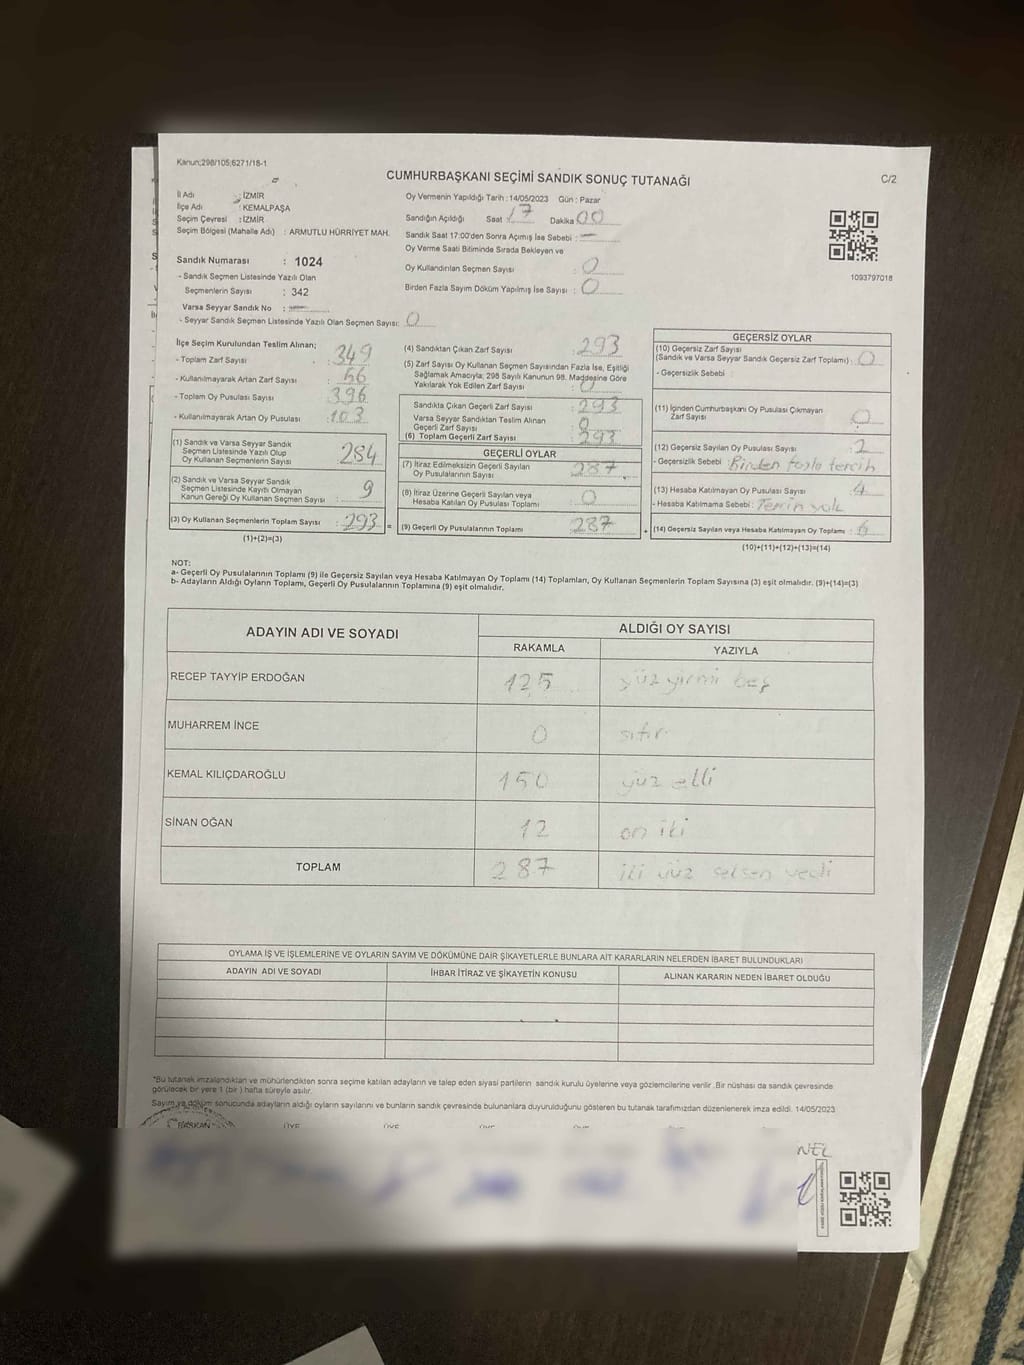 Kanun;298/105;6271/18-1
CUMHURBAŞKANI SEÇİMİ SANDIK SONUÇ TUTANAĞI
C/2
İl Adı : İZMİR
İlçe Adı : KEMALPAŞA
Seçim Çevresi : İZMİR
Seçim Bölgesi (Mahalle Adı) : ARMUTLU HÜRRİYET MAH.
Sandık Numarası : 1024
- Sandık Seçmen Listesinde Yazılı Olan
Seçmenlerin Sayısı : 342
Varsa Seyyar Sandık No : —
- Seyyar Sandık Seçmen Listesinde Yazılı Olan Seçmen Sayısı: 0
Oy Vermenin Yapıldığı Tarih : 14/05/2023 Gün : Pazar
Sandığın Açıldığı Saat 17 Dakika 00
Sandık Saat 17:00'den Sonra Açımış İse Sebebi : —
Oy Verme Saati Bitiminde Sırada Bekleyen ve
Oy Kullandırılan Seçmen Sayısı : 0
Birden Fazla Sayım Döküm Yapılmış İse Sayısı : 0
1093797018
İlçe Seçim Kurulundan Teslim Alınan;
- Toplam Zarf Sayısı : 349
- Kullanılmayarak Artan Zarf Sayısı : 56
- Toplam Oy Pusulası Sayısı : 396
- Kullanılmayarak Artan Oy Pusulası : 103
(1) Sandık ve Varsa Seyyar Sandık
Seçmen Listesinde Yazılı Olup
Oy Kullanan Seçmenlerin Sayısı : 284
(2) Sandık ve Varsa Seyyar Sandık
Seçmen Listesinde Kayıtlı Olmayan
Kanun Gereği Oy Kullanan Seçmen Sayısı : 9
(3) Oy Kullanan Seçmenlerin Toplam Sayısı : 293 =
(1)+(2)=(3)
(4) Sandıktan Çıkan Zarf Sayısı : 293
(5) Zarf Sayısı Oy Kullanan Seçmen Sayısından Fazla İse, Eşitliği
Sağlamak Amacıyla; 298 Sayılı Kanunun 98. Maddesine Göre
Yakılarak Yok Edilen Zarf Sayısı : 0
Sandıkta Çıkan Geçerli Zarf Sayısı : 293
Varsa Seyyar Sandıktan Teslim Alınan
Geçerli Zarf Sayısı : 0
(6) Toplam Geçerli Zarf Sayısı : 293
GEÇERLİ OYLAR
(7) İtiraz Edilmeksizin Geçerli Sayılan
Oy Pusulalarının Sayısı : 287
(8) İtiraz Üzerine Geçerli Sayılan veya
Hesaba Katılan Oy Pusulası Toplamı : 0
(9) Geçerli Oy Pusulalarının Toplamı : 287 +
GEÇERSİZ OYLAR
(10) Geçersiz Zarf Sayısı
(Sandık ve Varsa Seyyar Sandık Geçersiz Zarf Toplamı) : 0
- Geçersizlik Sebebi :
(11) İçinden Cumhurbaşkanı Oy Pusulası Çıkmayan
Zarf Sayısı : 0
(12) Geçersiz Sayılan Oy Pusulası Sayısı : 2
- Geçersizlik Sebebi : Birden fazla tercih
(13) Hesaba Katılmayan Oy Pusulası Sayısı : 4
- Hesaba Katılmama Sebebi : Tercih yok
(14) Geçersiz Sayılan veya Hesaba Katılmayan Oy Toplamı : 6
(10)+(11)+(12)+(13)=(14)
NOT:
a- Geçerli Oy Pusulalarının Toplamı (9) ile Geçersiz Sayılan veya Hesaba Katılmayan Oy Toplamı (14) Toplamları, Oy Kullanan Seçmenlerin Toplam Sayısına (3) eşit olmalıdır. (9)+(14)=(3)
b- Adayların Aldığı Oyların Toplamı, Geçerli Oy Pusulalarının Toplamına (9) eşit olmalıdır.
ADAYIN ADI VE SOYADI
ALDIĞI OY SAYISI
RAKAMLA YAZIYLA
RECEP TAYYİP ERDOĞAN 125 yüz yirmi beş
MUHARREM İNCE 0 sıfır
KEMAL KILIÇDAROĞLU 150 yüz elli
SİNAN OĞAN 12 on iki
TOPLAM 287 iki yüz seksen yedi
OYLAMA İŞ VE İŞLEMLERİNE VE OYLARIN SAYIM VE DÖKÜMÜNE DAİR ŞİKAYETLERLE BUNLARA AİT KARARLARIN NELERDEN İBARET BULUNDUKLARI
ADAYIN ADI VE SOYADI İHBAR İTİRAZ VE ŞİKAYETİN KONUSU ALINAN KARARIN NEDEN İBARET OLDUĞU
*Bu tutanak imzalandıktan ve mühürlendikten sonra seçime katılan adayların ve talep eden siyasi partilerin sandık kurulu üyelerine veya gözlemcilerine verilir. Bir nüshası da sandık çevresinde
görülecek bir yere 1 (bir) hafta süreyle asılır.
Sayım ve döküm sonucunda adayların aldığı oyların sayılarını ve bunların sandık çevresinde bulunanlara duyurulduğunu gösteren bu tutanak tarafımızdan düzenlenerek imza edildi. 14/05/2023
BAŞKAN ÜYE ÜYE ÜYE
NEL